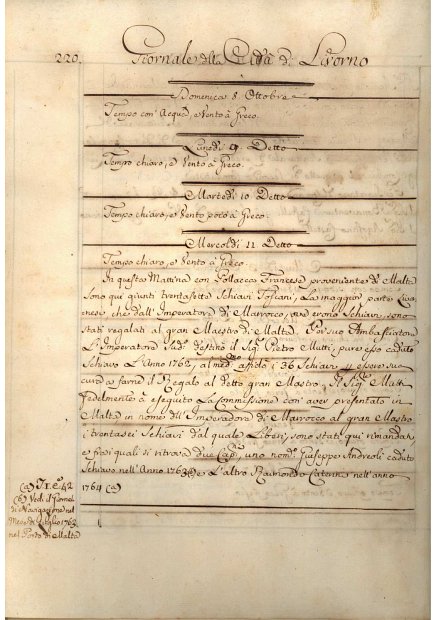 220.
Giornale della Città di Livorno
Domenica 8. Ottobre
Tempo con Acqua, e Vento à Greco.
Lunedì 9. Detto
Tempo chiaro, e Vento à Greco.
Martedì 10 Detto
Tempo chiaro, e Vento poco à Greco.
Mercoldì 11 Detto
Tempo chiaro, e Vento à Greco.
In questa Mattina con Pollacca Francese proveniente di Malta
sono qui giunti trentasette Schiavi Toscani, La maggior parte
che dall'Imperatore di Marrocco, ove erono Schiavi, sono
stati regalati al gran Maestro di Malta. Per suo Ambasciatore
L'Imperatore destinò il Sig. Pietro Mutti, pure esso caduto
Schiavo L'Anno 1762, al affidò i 36 Schiavi
à farne il Regalo al detto gran Mastro. Il Sig.
fedelmente à eseguito La Commissione con aver presentato in
Malta in nome dell'Imperadore di Marrocco al gran Mastro
i trentasei Schiavi dal quale Liberi, sono stati qui
e frà quali si ritrova due Cap. uno nom. Giuseppe Andreoli caduto
Schiavo nell'Anno 1762 e L'altro Raimondo nell'anno
1764 (a)
(a)
(b) Vedi il Giornal
di Navigazione nel
Mese di Luglio 1762
nel Porto di Malta